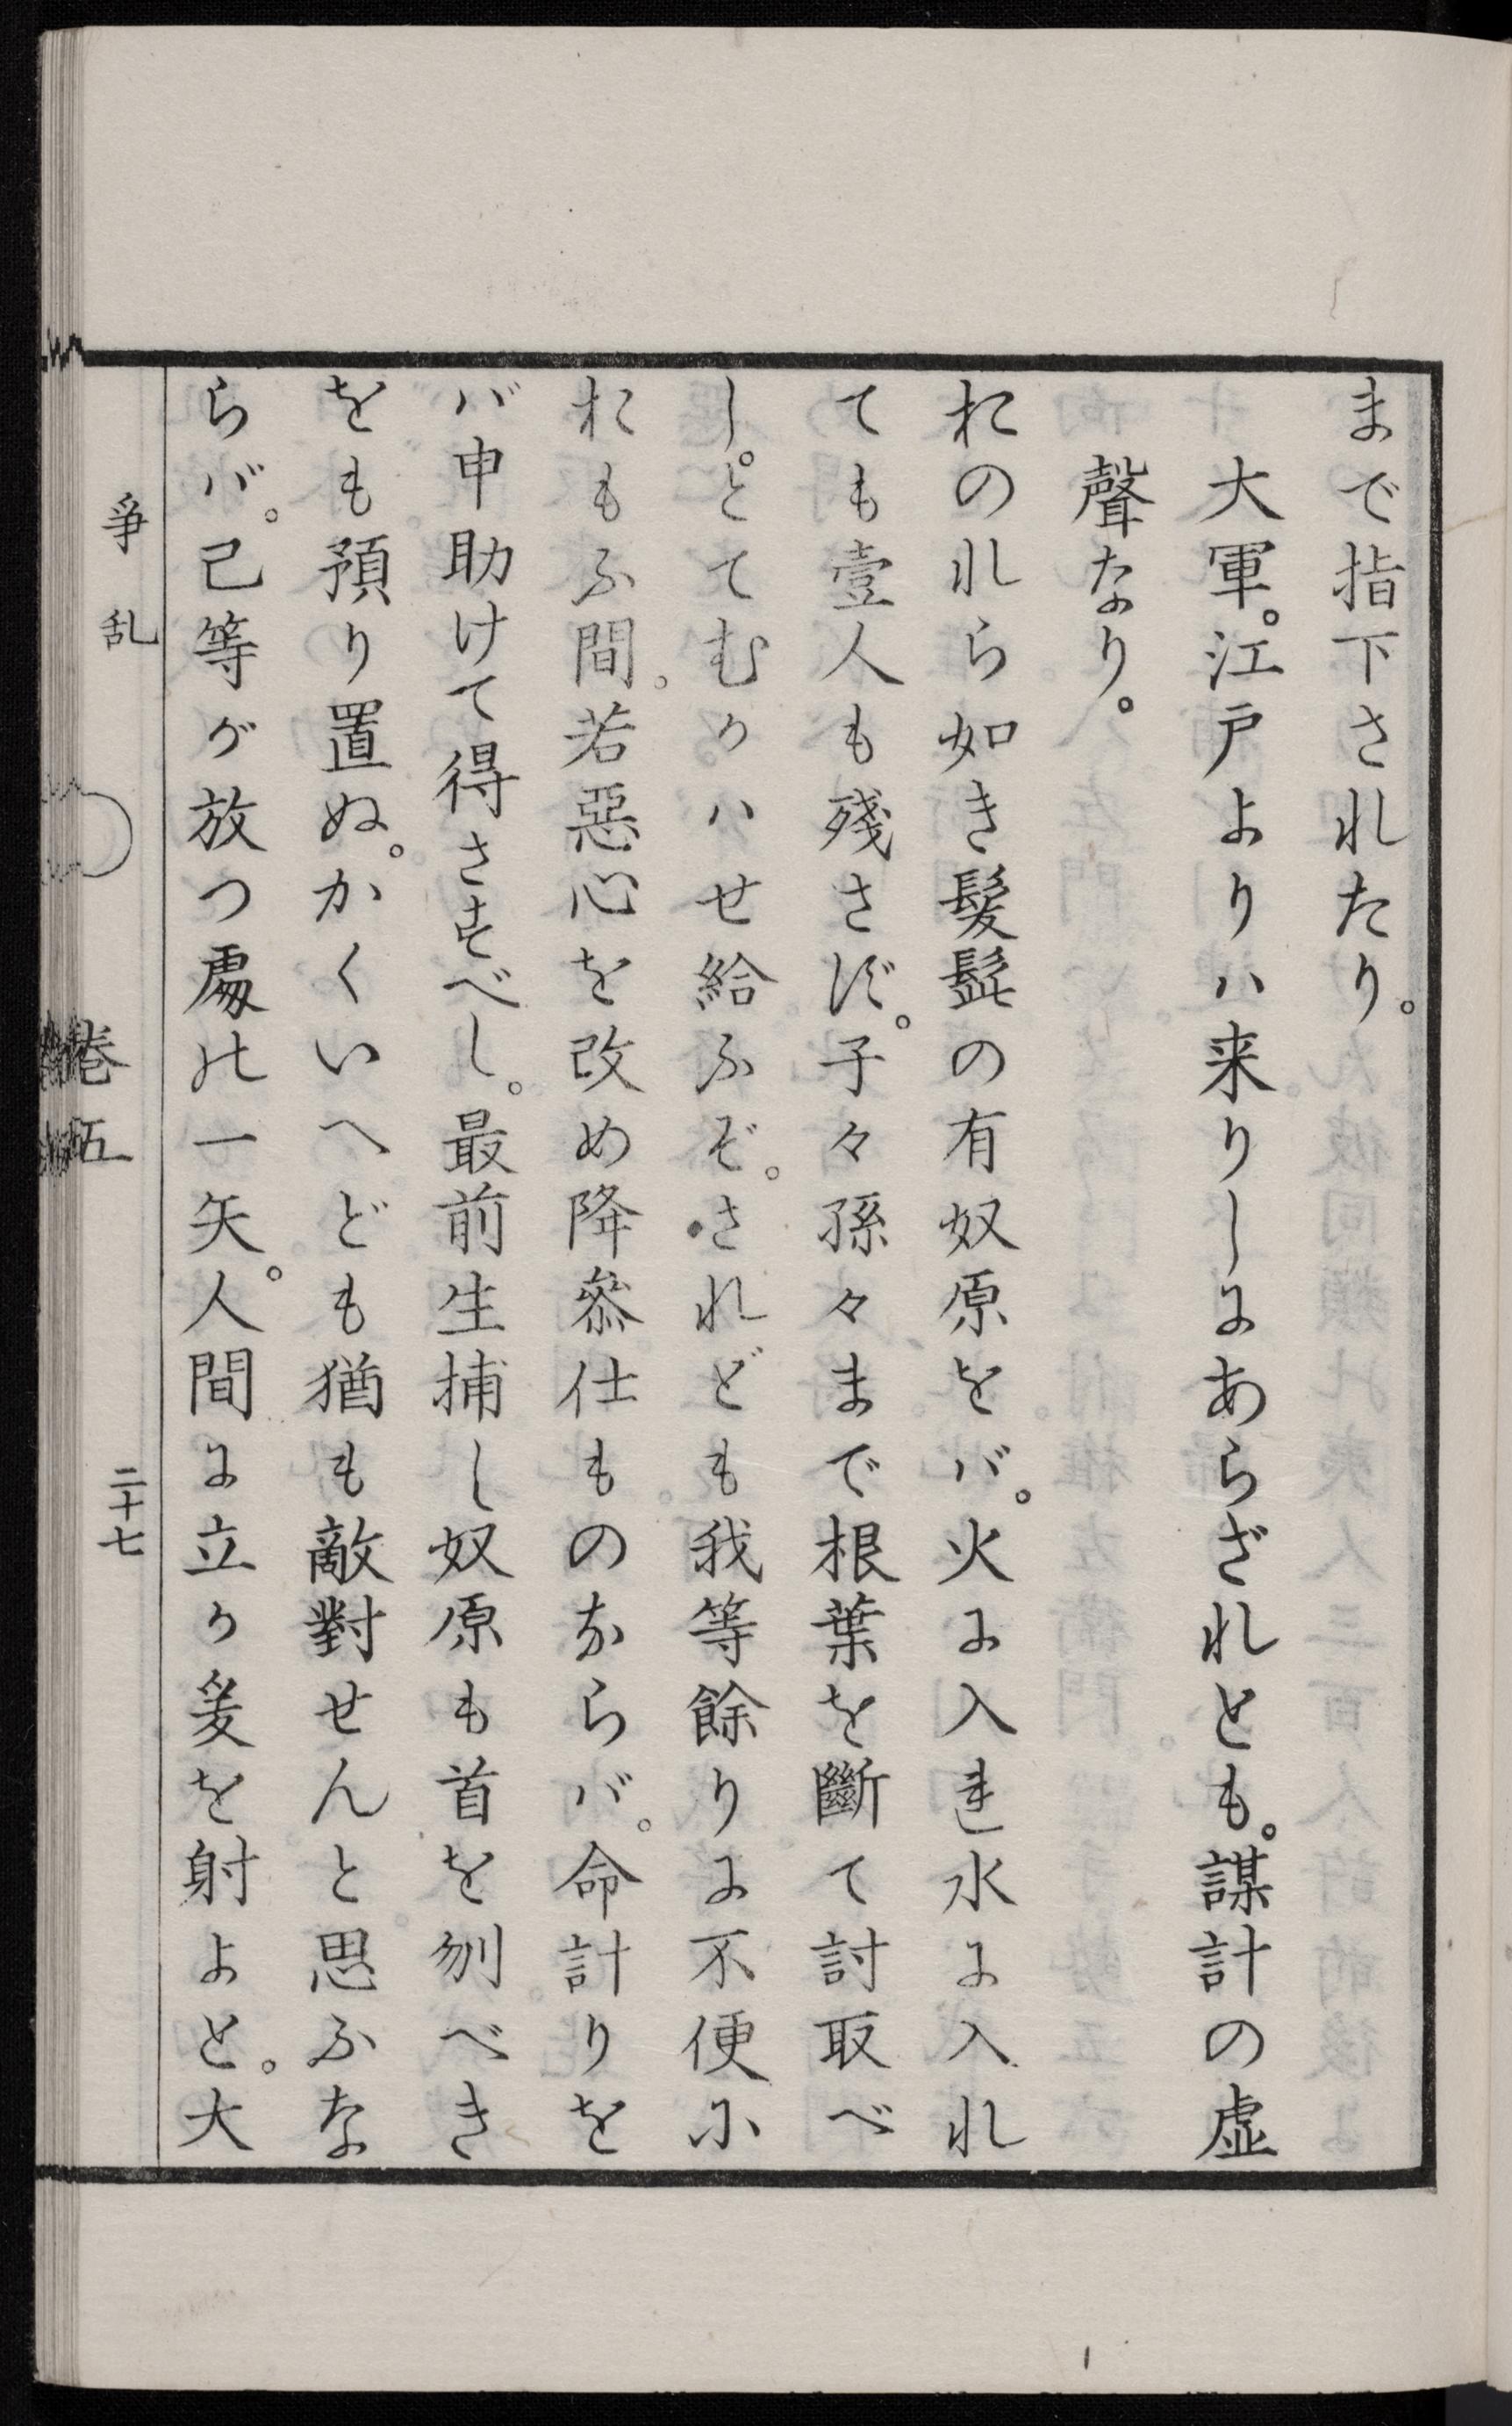 まで指下されたり。
大軍。江戸よりハ来りしにあらざれとも。謀計の虚
聲なり。
おのれら如き髪髭の有奴原をバ。火に入れ水に入れ
ても壹人も殘さず。子々孫々まで根葉を斷て討取べ
し。とてむかハせ給ふぞ。されども我等餘りに不便に
おもふ間。若惡心を改め降叅仕ものならバ。命計りを
バ申助けて得さすべし。最前生捕し奴原も首を刎べき
をも預り置ぬ。かくいへども猶も敵對せんと思ふな
らバ。己等が放つ處の一矢。人間に立か爰を射よと。大
爭乱 巻五 二十七